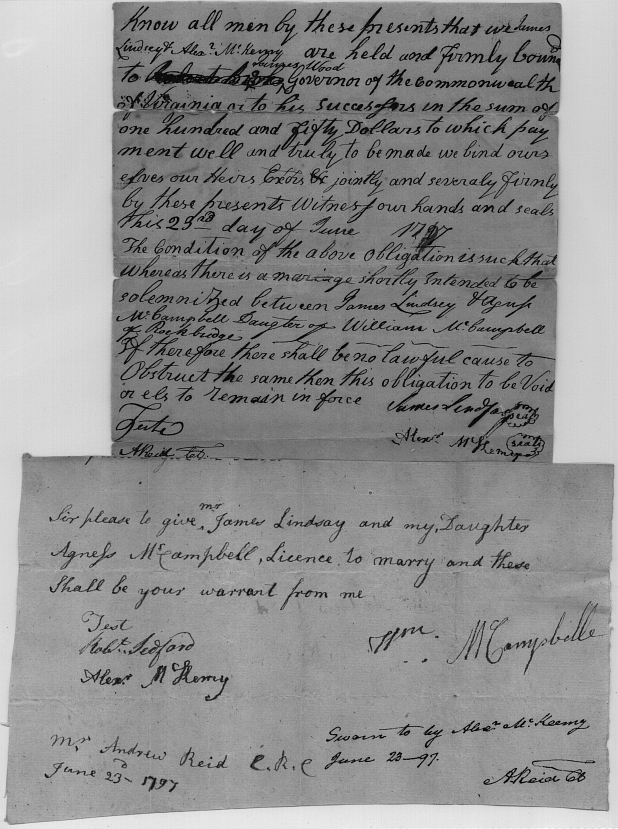 Know all men by these presents that we James
Lindsey & Alexr. McKemy are held and firmly bound
to James Wood Governor of the Commonwealth
of Virginia or to his successors in the sum of
one hundred and fifty Dollars to which pay
ment well and truly to be made we bind ours
elves our Heirs Exors &c jointly and severaly firmly
by these presents Witness our hands and seals
this 23rd day of June 1797
The Condition of the above obligation is such that
whereas there is a mariage shortly Intended to be
solemnitzed between James Lindsey & Agnss
McCampbell Daugter of William McCampbell
of Rockbridge
If therefore there shall be no lawful cause to
Obstruct the same then this obligation to be Void
or els to remain in force
James Lindsay seal
Teste
Alexr. McKemy seal
AReid Ct.
Sir please to give mr James Lindsay and my Daughter
Agness McCampbell, Licence to marry and these
Shall be your warrant from me
Test
Wm. McCampbelle
Robt.
Alexr. McKemy
Sworn to by Alexr. McKemy
June 23—97.
AReid Ct
Mr Andrew Reid C.R.C
June 23d—1797